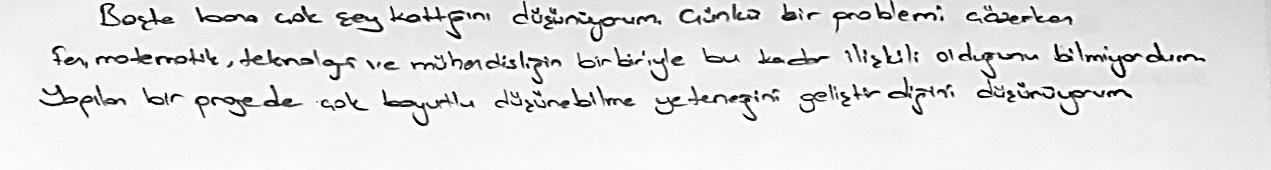 Başta bana çok şey kattığını düşünüyorum. Çünkü bir problemi çözerken
fen, matematik, teknoloji ve mühendisliğin birbiriyle bu kadar ilişkili olduğunu bilmiyordum.
Yapılan bir projede çok boyutlu düşünebilme yeteneğini geliştirdiğini düşünüyorum